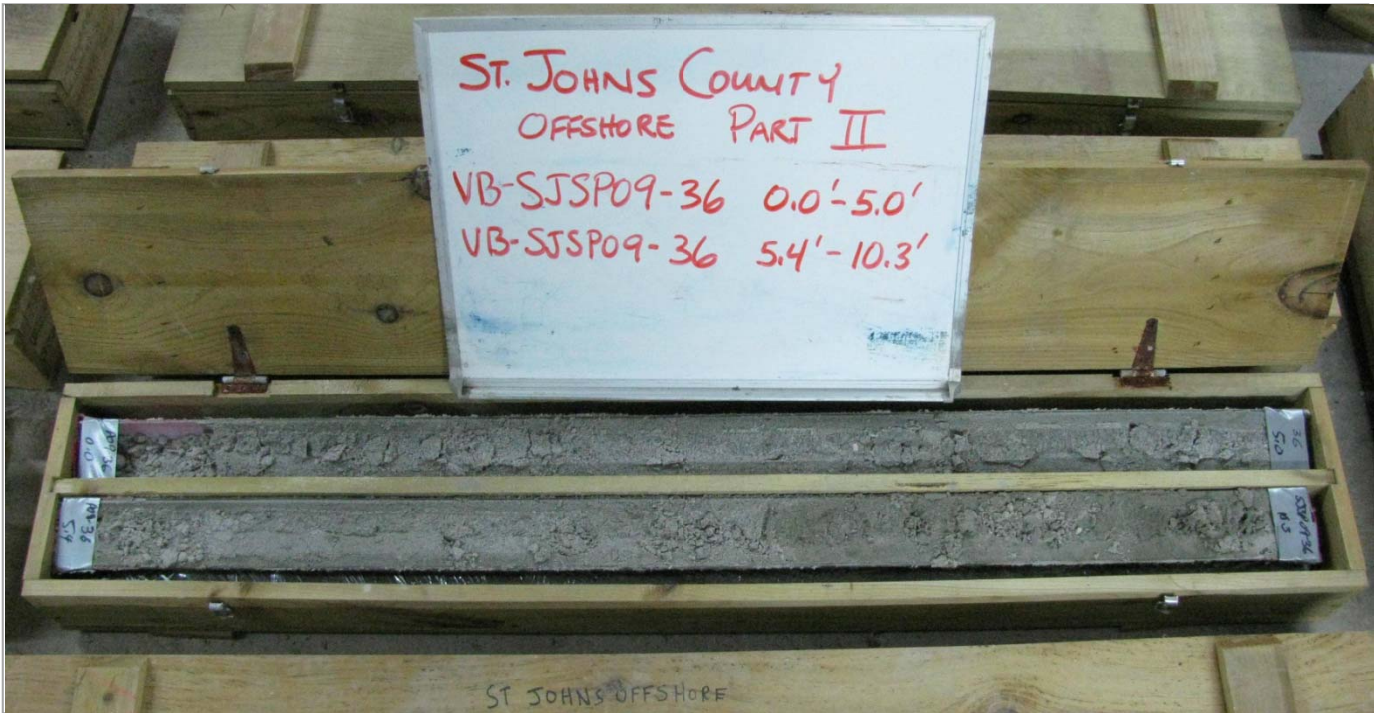 ST. JOHNS COUNTY
OFFSHORE PART II
VB-SJSP09-36 0.0'-5.0'
VB-SJSP09-36 5.4'-10.3'
0.0
36
5.0
5.4
ST JOHNS OFFSHORE